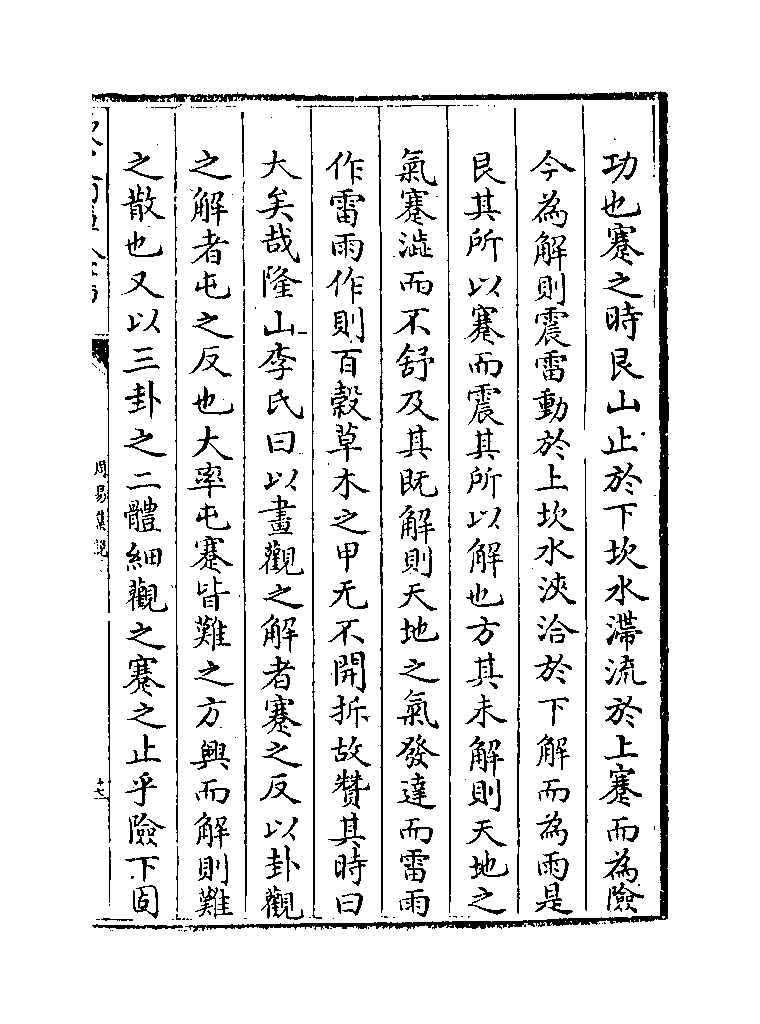 功也蹇之時艮山止於下坎水滯流於上蹇而為險
今為解則震雷動於上坎水浹洽於下解而為雨是
艮其所以蹇而震其所以解也方其未解則天地之
氣蹇澁而不舒及其既解則天地之氣發達而雷雨
作雷雨作則百穀草木之甲无不開拆故贊其時曰
大矣哉隆山李氏曰以畫觀之解者蹇之反以卦觀
之解者屯之反也大率屯蹇皆難之方興而解則難
之散也又以三卦之二體細觀之蹇之止乎險下固
周易集說